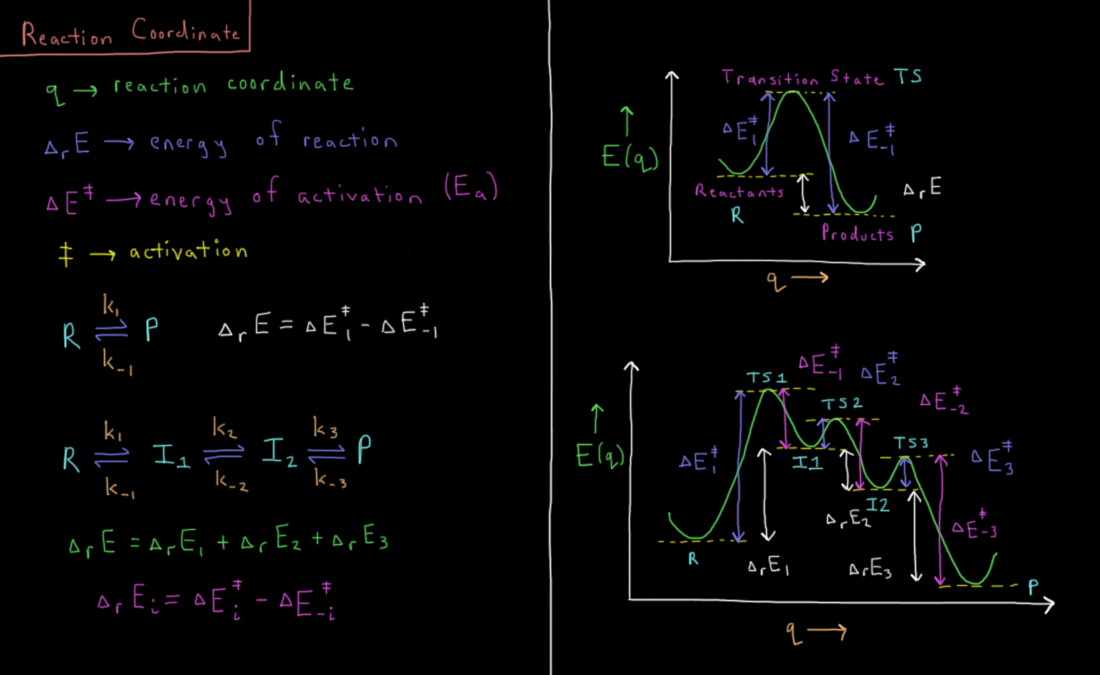 Reaction Coordinate
q → reaction coordinate
ΔrE → energy of reaction
ΔE‡ → energy of activation (Ea)
‡ → activation
k1
R ⇌ P
k-1
ΔrE = ΔE1‡ - ΔE-1‡
k1 k2 k3
R ⇌ I1 ⇌ I2 ⇌ P
k-1 k-2 k-3
ΔrE = ΔrE1 + ΔrE2 + ΔrE3
ΔrEi = ΔEi‡ - ΔE-i‡
Transition State TS
ΔE1‡
ΔE-1‡
E(q)
Reactants
R
ΔrE
Products P
q →
ΔE-1‡
ΔE2‡
TS1
TS2
ΔE-2‡
TS3
E(q)
ΔE1‡
I1
ΔE3‡
I2
ΔrE2
ΔE-3‡
R
ΔrE1
ΔrE3
P
q →